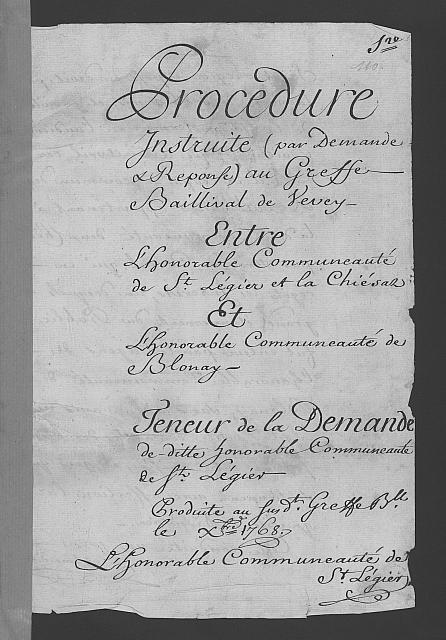 Procedure
Instruite (par Demande
& Reponse) au Greffe
Baillival de Vevey
Entre
L'Honorable Communeauté
de St. Légier et la Chiésaz
Et
L'Honorable Communeauté de
Blonay
Teneur de la Demande
de ditte honorable Communeauté
de St. Légier
Produite au susdt. Greffe Bll
le Xbre 1768
L'Honorable Communeauté de
St Légier